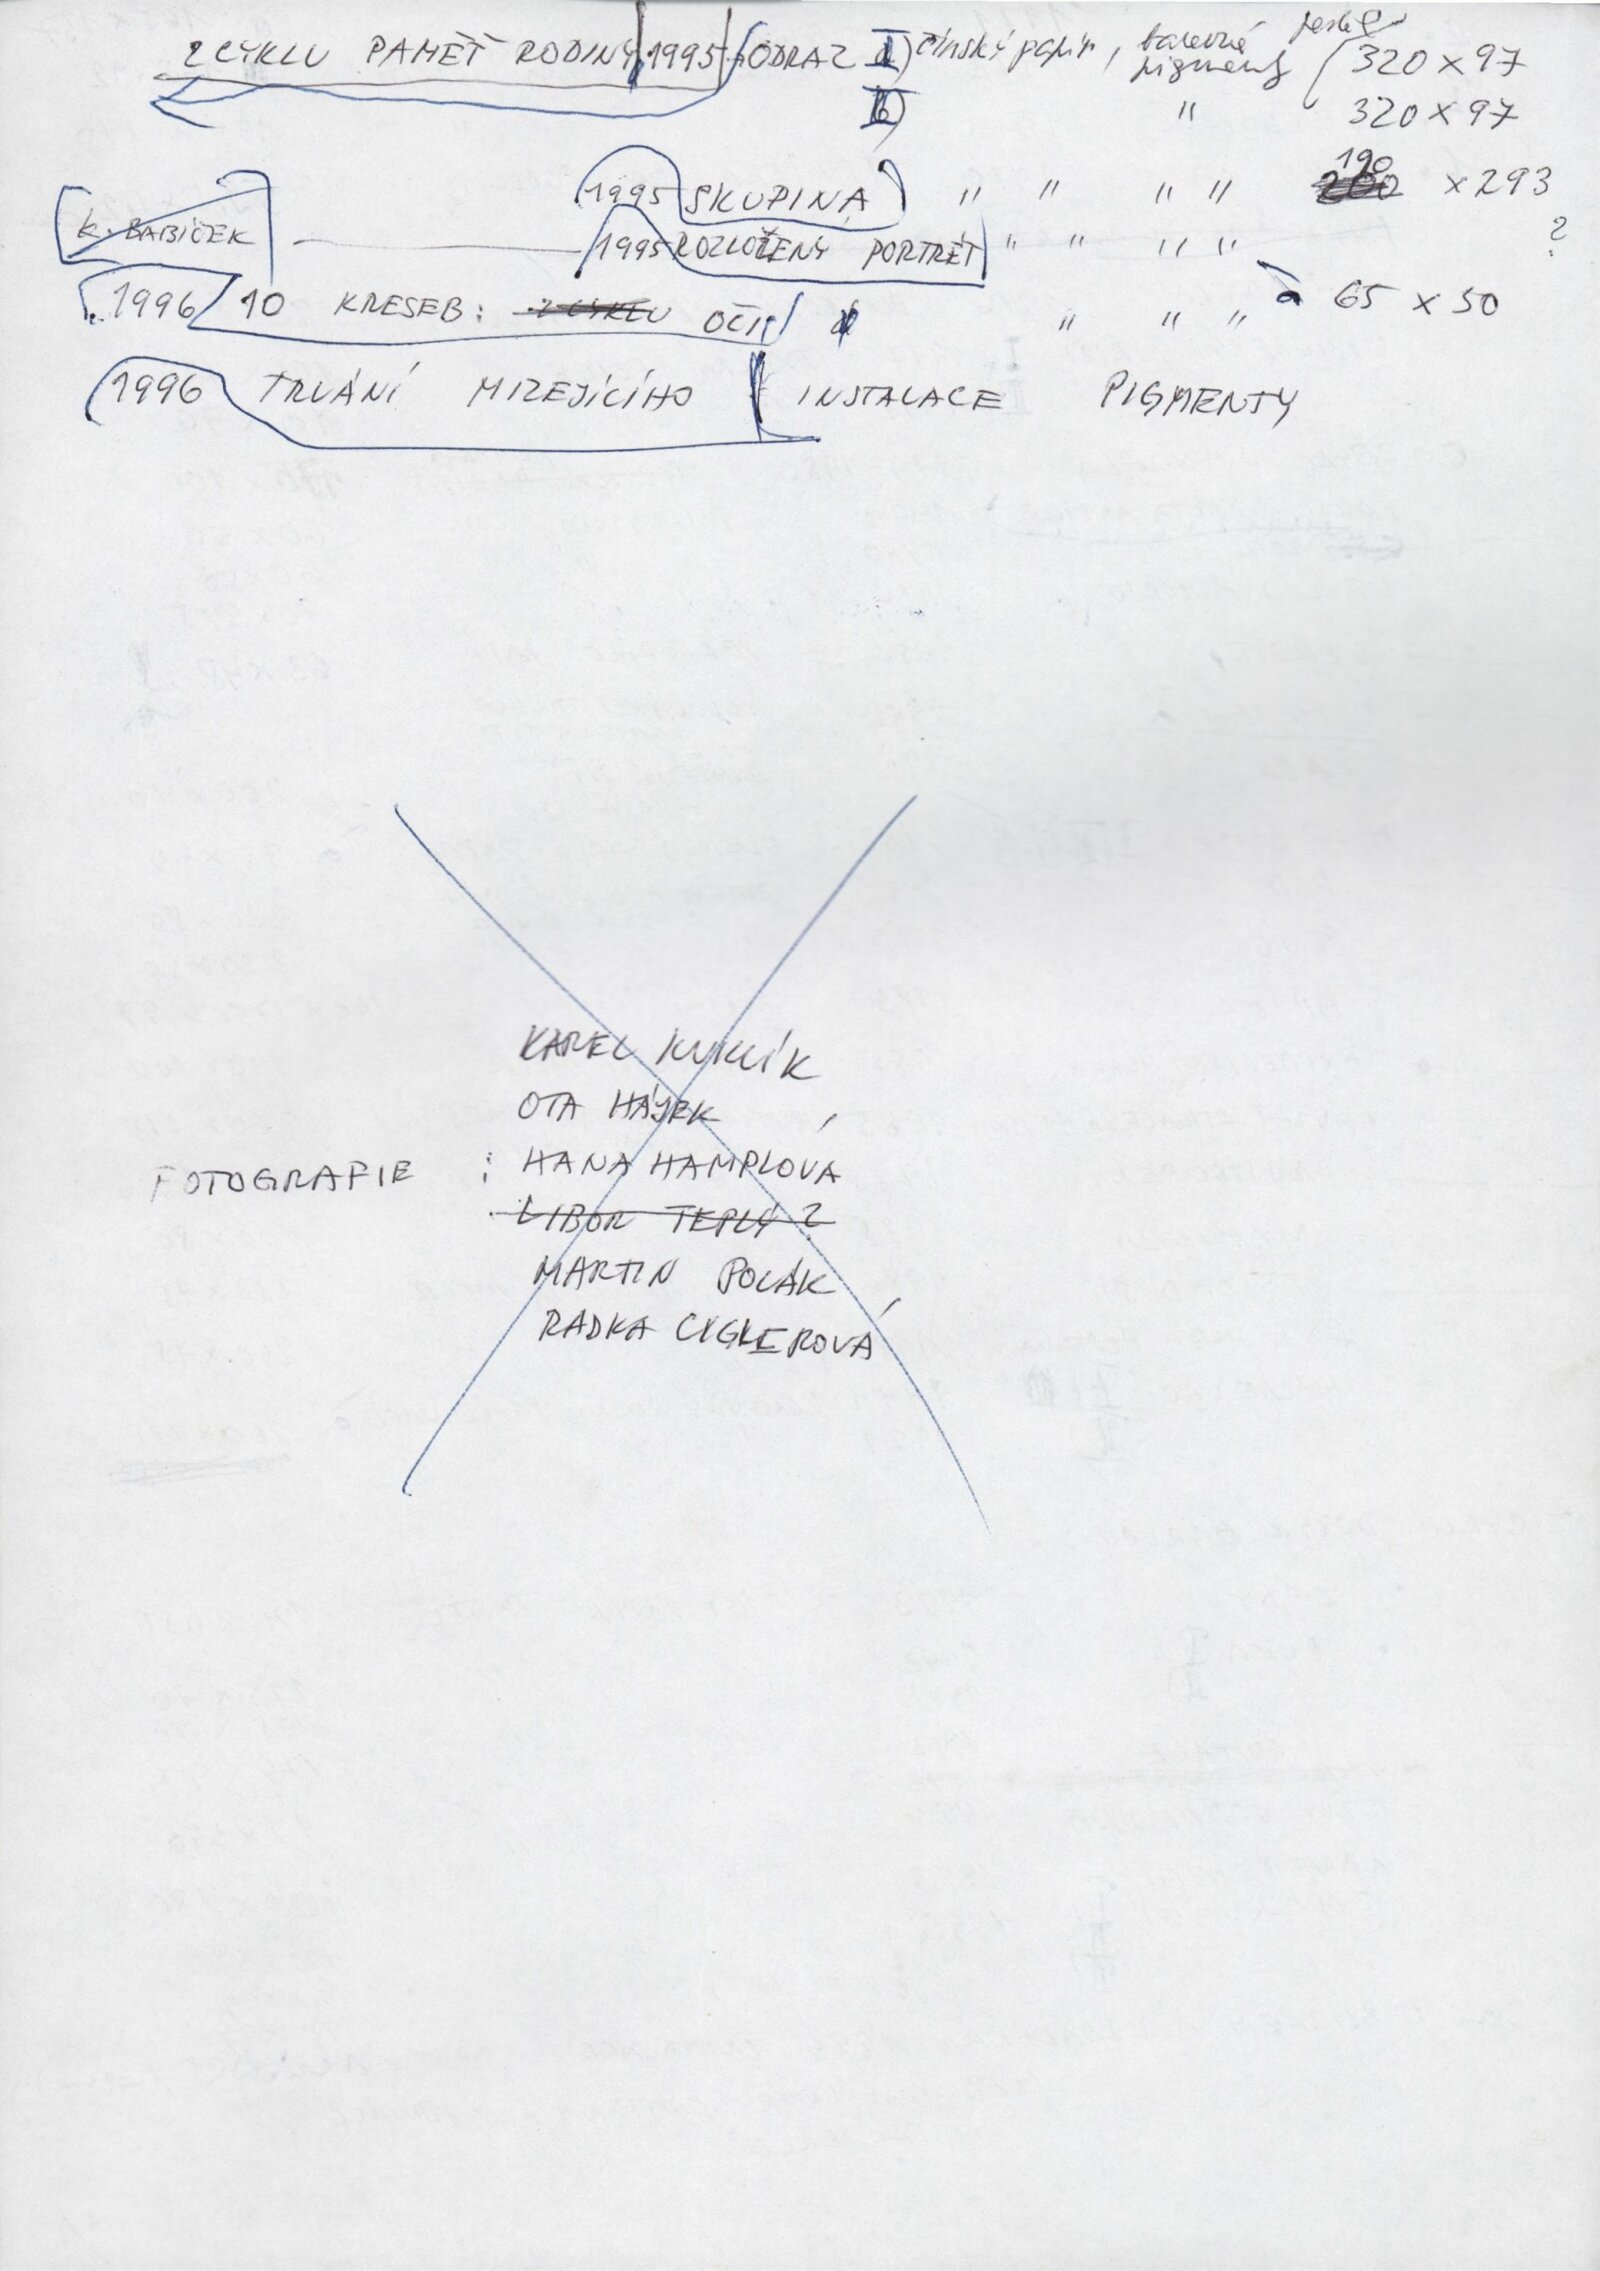 Z CYKLU PAMĚŤ RODINY 1995 ODRAZ I) čínský papír, barevné pigmenty pastel 320 x 97
II) " 320 x 97
1995 SKUPINA " " " " 190 x 293
K. BABÍČEK 1995 ROZLOŽENÝ PORTRÉT " " " " ?
1996 10 KRESEB: Z CYKLU OČI " " " à 65 x 50
1996 TRVÁNÍ MIZEJÍCÍHO INSTALACE PIGMENTY
KAREL KUKLÍK
OTA HÁJEK
FOTOGRAFIE : HANA HAMPLOVÁ
LIBOR TEPLÝ ?
MARTIN POLÁK
RADKA CYGLEROVÁ